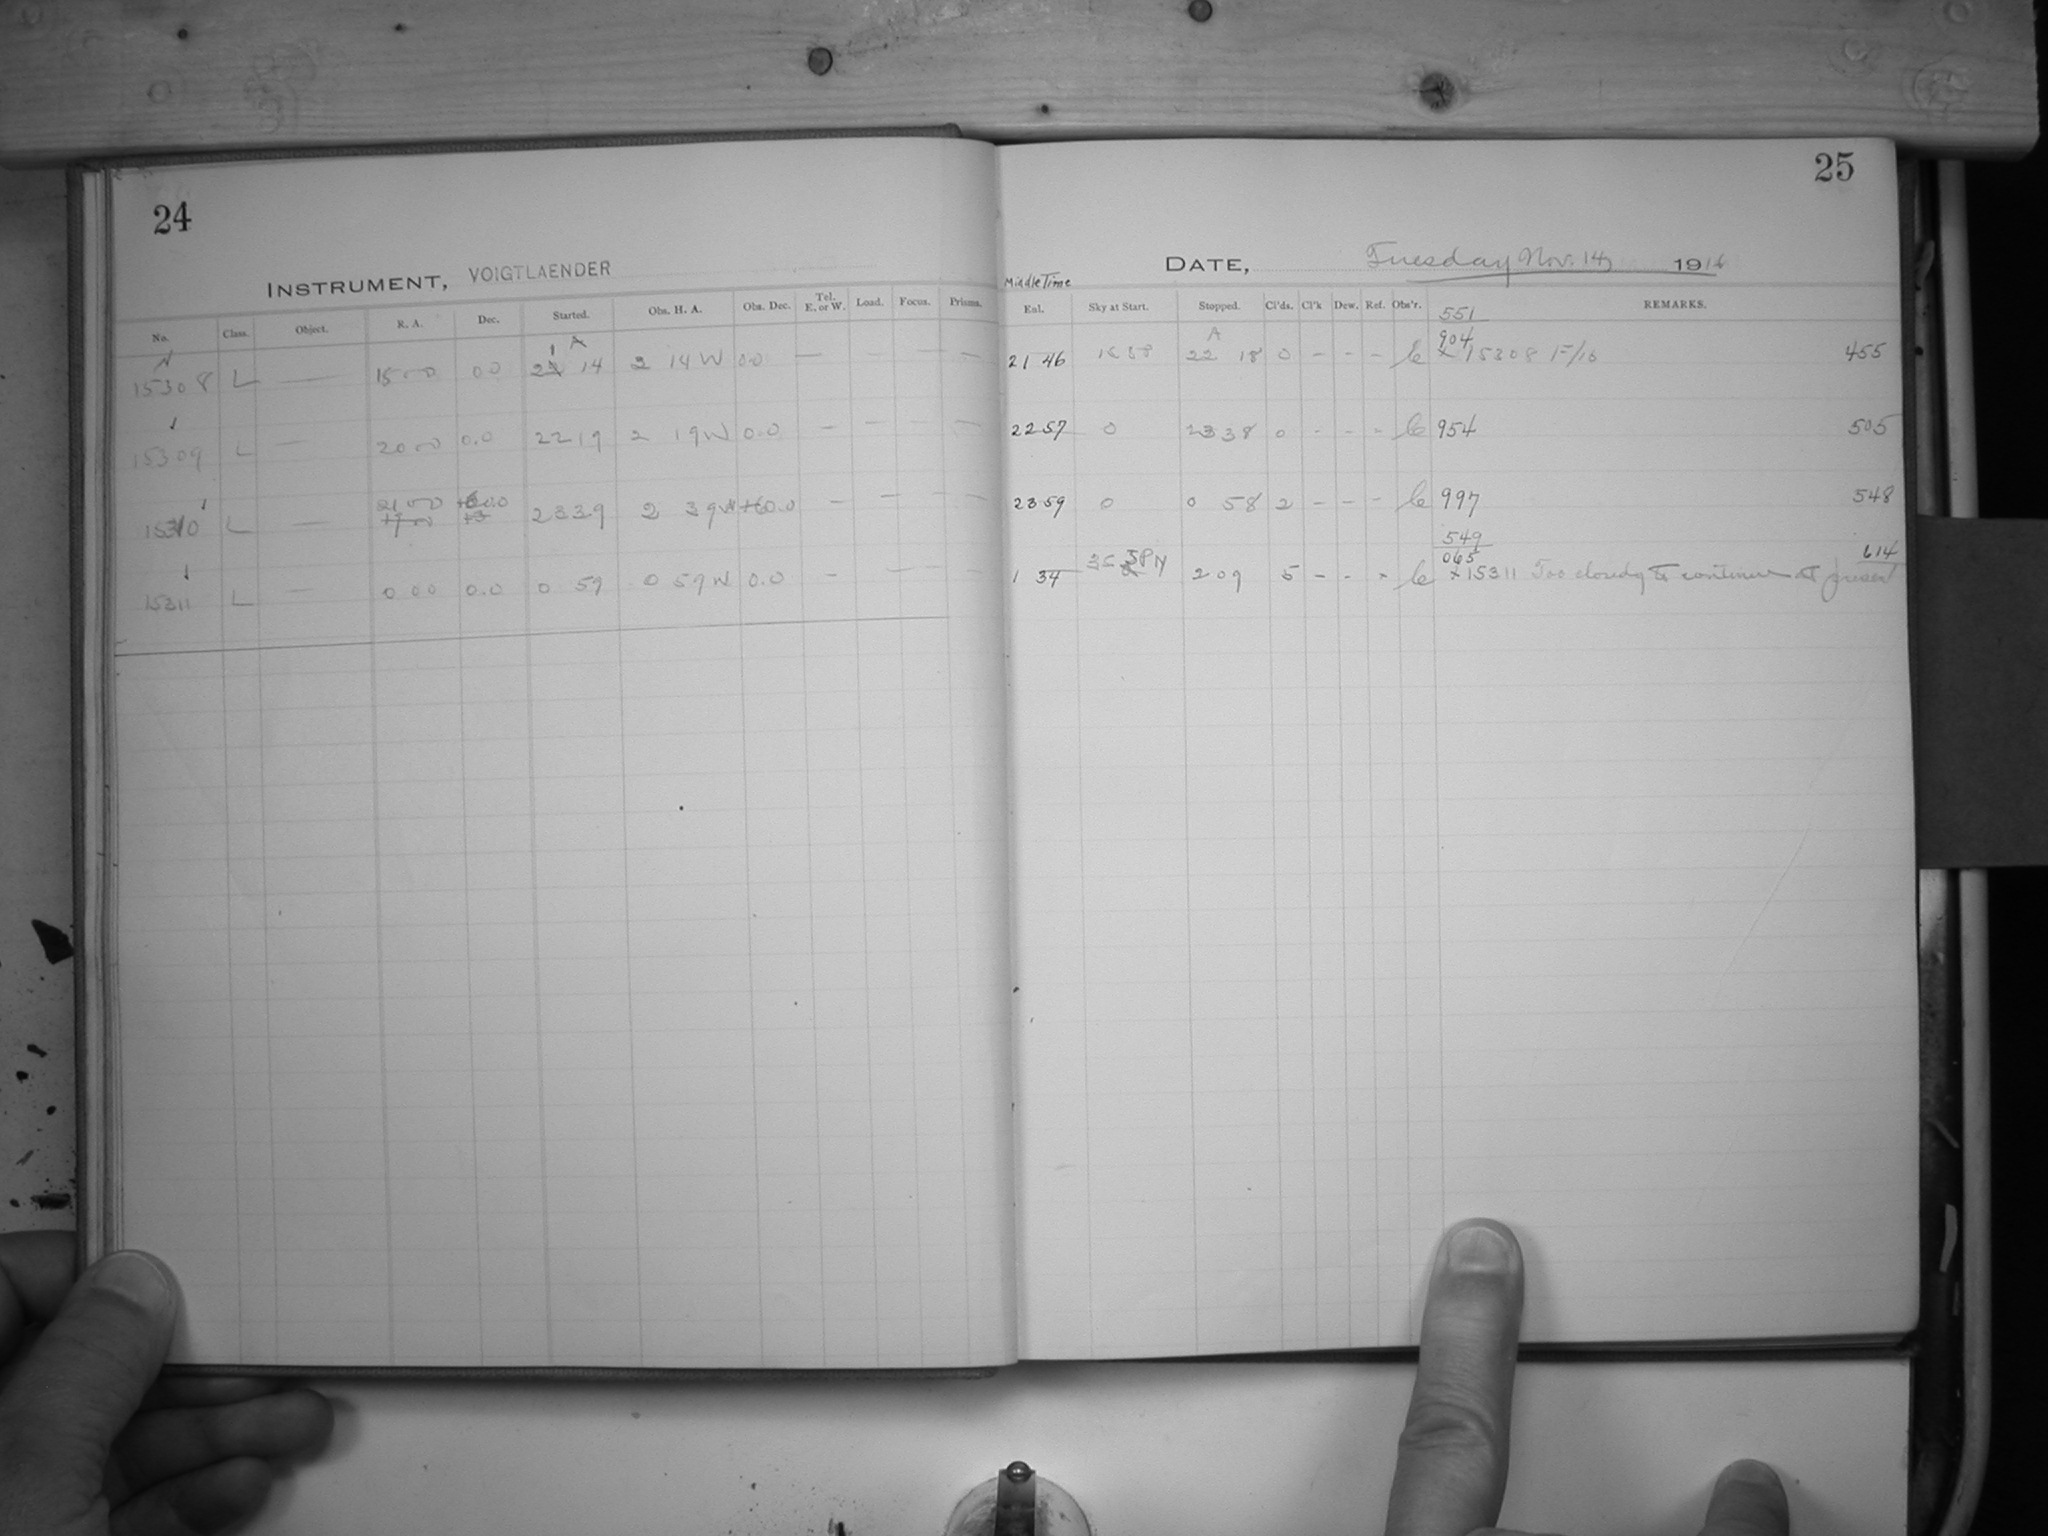 24
INSTRUMENT, VOIGTLAENDER
No. Class. Object. R. A. Dec. Started. Obs. H. A. Obs. Dec. Tel. E. or W. Load. Focus. Prisms.
15308 L — 15 00 0 0 21 14 2 14 W 0.0 — — — —
15309 L — 20 00 0.0 22 19 2 19 W 0.0 — — — —
15310 L — 21 00 +60.0 23 39 2 39 W +60.0 — — — —
15311 L — 0 00 0.0 0 59 0 59 W 0.0 — — — —
25
DATE, Tuesday Nov. 14, 1916
Middle Time
Enl. Sky at Start. Stopped. Cl'ds. Cl'k Dew. Ref. Obs'r. REMARKS.
551
904
21 46 22 18 0 - - - x 15308 F/10 455
22 57 0 23 38 0 - - - 954 505
23 59 0 0 58 2 - - - 997 548
549
065 614
1 34 2 09 5 - - - x 15311 Too cloudy to continue at present